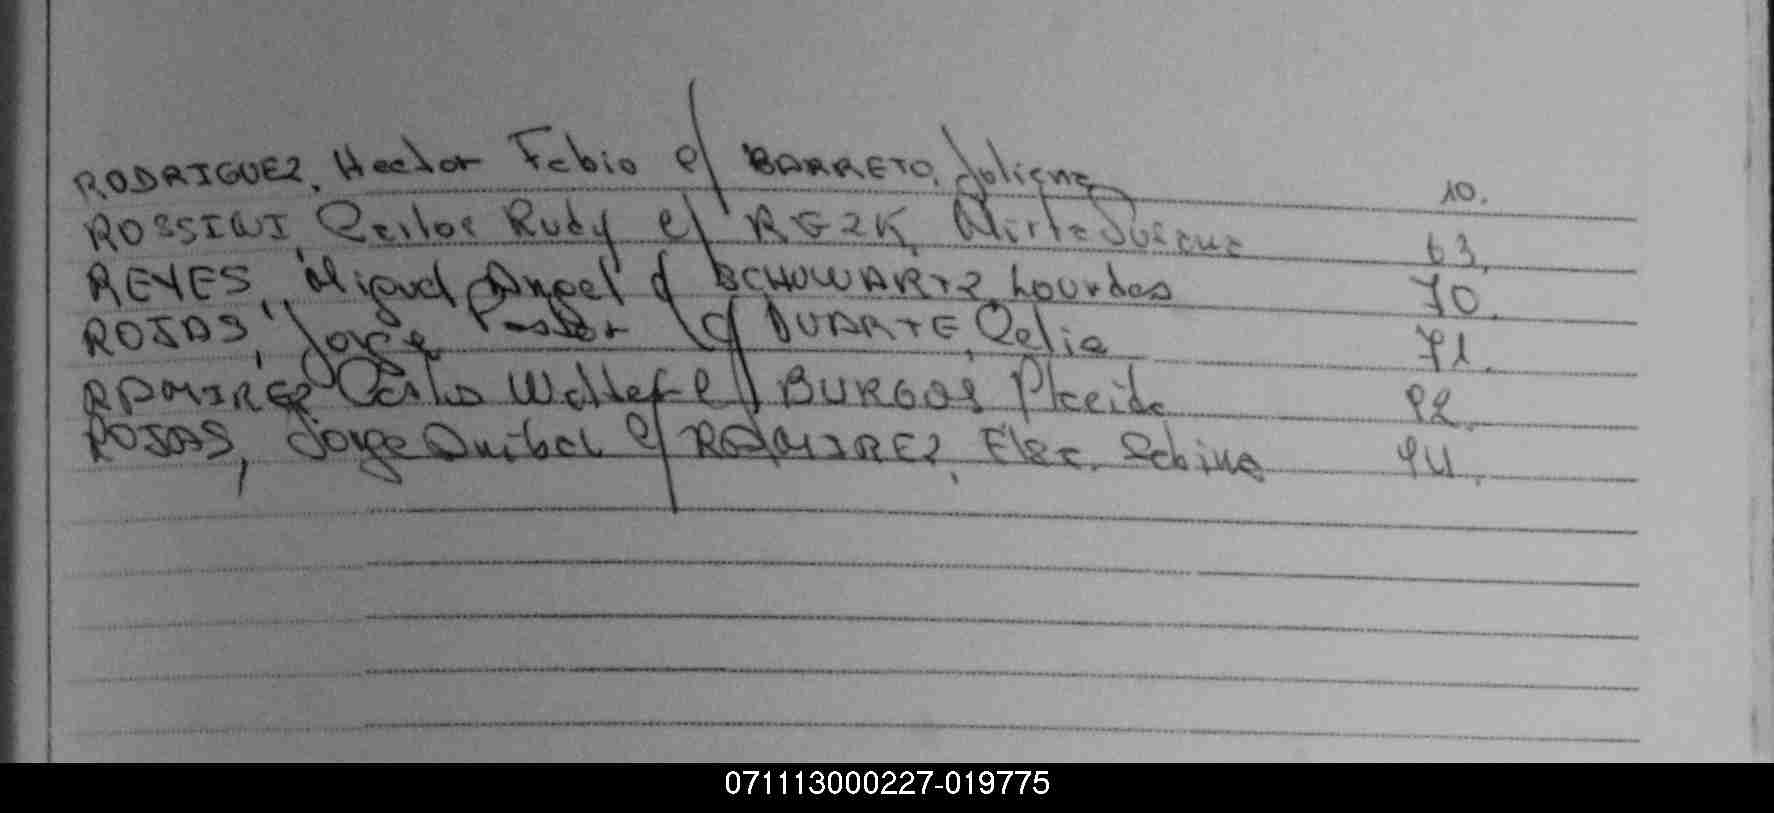 RODRIGUEZ, Hector Fabio c/ BARRETO, Juliana 10.
ROSSINI, Carlos Rudy c/ REZK, Mirta Susana 63.
REYES, Miguel Angel c/ SCHUWARTZ Lourdes 70.
ROJAS, Jorge Pastor c/ DUARTE, Celia 71.
RAMIREZ Carlos Walter c/ BURGOS Placida
ROJAS, Jorge Anibal c/ RAMIREZ, Elsa Sabina
071113000227-019775